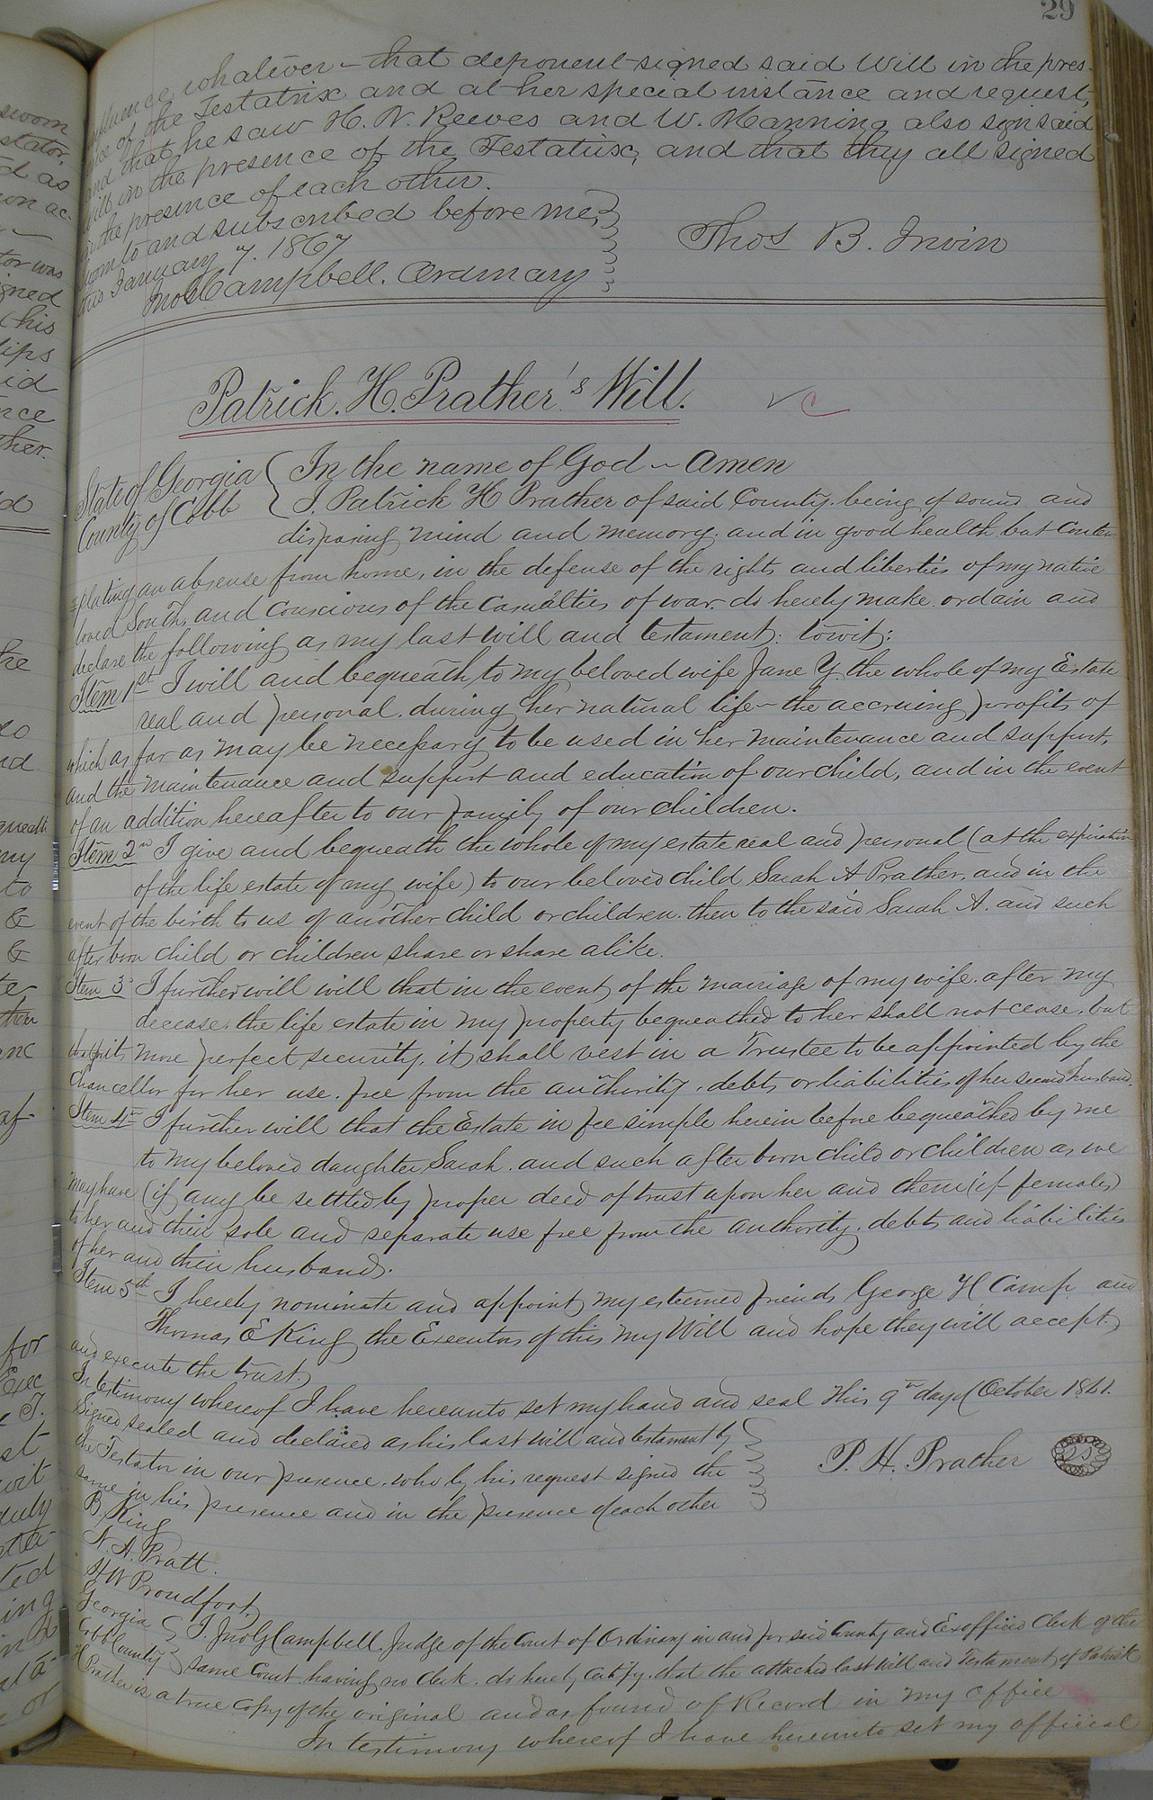 29
whatever - that deponent signed said Will in the pres-
ence of the Testatrix and at her special instance and request,
and that he saw H. N. Reeves and W. Manning also sign said
Will in the presence of the Testatrix, and that they all signed
in the presence of each other.
Sworn to and subscribed before me,
this January 7. 1867
Jno G Campbell. Ordinary
Thos B. Irwin
Patrick. H. Prather's Will.
State of Georgia
County of Cobb
In the name of God - Amen
I. Patrick H Prather of said County. being of sound and
disposing mind and memory. and in good health but contem
plating an absense from home, in the defense of the rights and liberties of my native
loved South, and conscious of the casualties of war. do hereby make. ordain and
declare the following as my last will and testament: towit:
Item 1st I will and bequeath to my beloved wife Jane Y the whole of my Estate
real and personal. during her natural life - the accruing profits of
which as far as may be necessary to be used in her maintenance and support,
and the maintenance and support and education of our child, and in the event
of an addition hereafter to our family of our children.
Item 2nd I give and bequeath the whole of my estate real and personal (at the expiration
of the life estate of my wife) to our beloved child Sarah A Prather, and in the
event of the birth to us of another child or children. then to the said Sarah A. and such
after born child or children share or share alike.
Item 3d I further will will that in the event of the marriage of my wife. after my
decease. the life estate in my property bequeathed to her shall not cease, but
for its more perfect security, it shall vest in a Trustee to be appointed by the
Chancellor for her use. free from the authority. debts or liabilities of her second husband.
Item 4th I further will that the Estate in fee simple herein before bequeathed by me
to my beloved daughter Sarah. and such after born child or children as we
may have (if any be settled by proper deed of trust upon her and them (if females)
to her and their sole and separate use free from the authority. debts and liabilities
of her and their husbands.
Item 5th I hereby nominate and appoint my esteemed friends George H Camp and
Thomas E King the Executors of this my Will and hope they will accept
and execute the trust.
In testimony whereof I have hereunto set my hand and seal this 9th day of October 1861.
Signed sealed and declared as his last will and testament by
the Testator in our presence. who by his request signed the
same in his presence and in the presence of each other
P. H. Prather
LS
B King
N. A. Pratt.
H W Proudfoot
Georgia
Cobb County
I. Jno G Campbell. Judge of the Court of Ordinary in and for said County and Exofficio Clerk of the
same Court having no Clerk. do hereby Certify. that the attached last Will and Testament of Patrick
H Prather is a true copy of the original and as found of Record in my office
In testimony whereof I have hereunto set my official